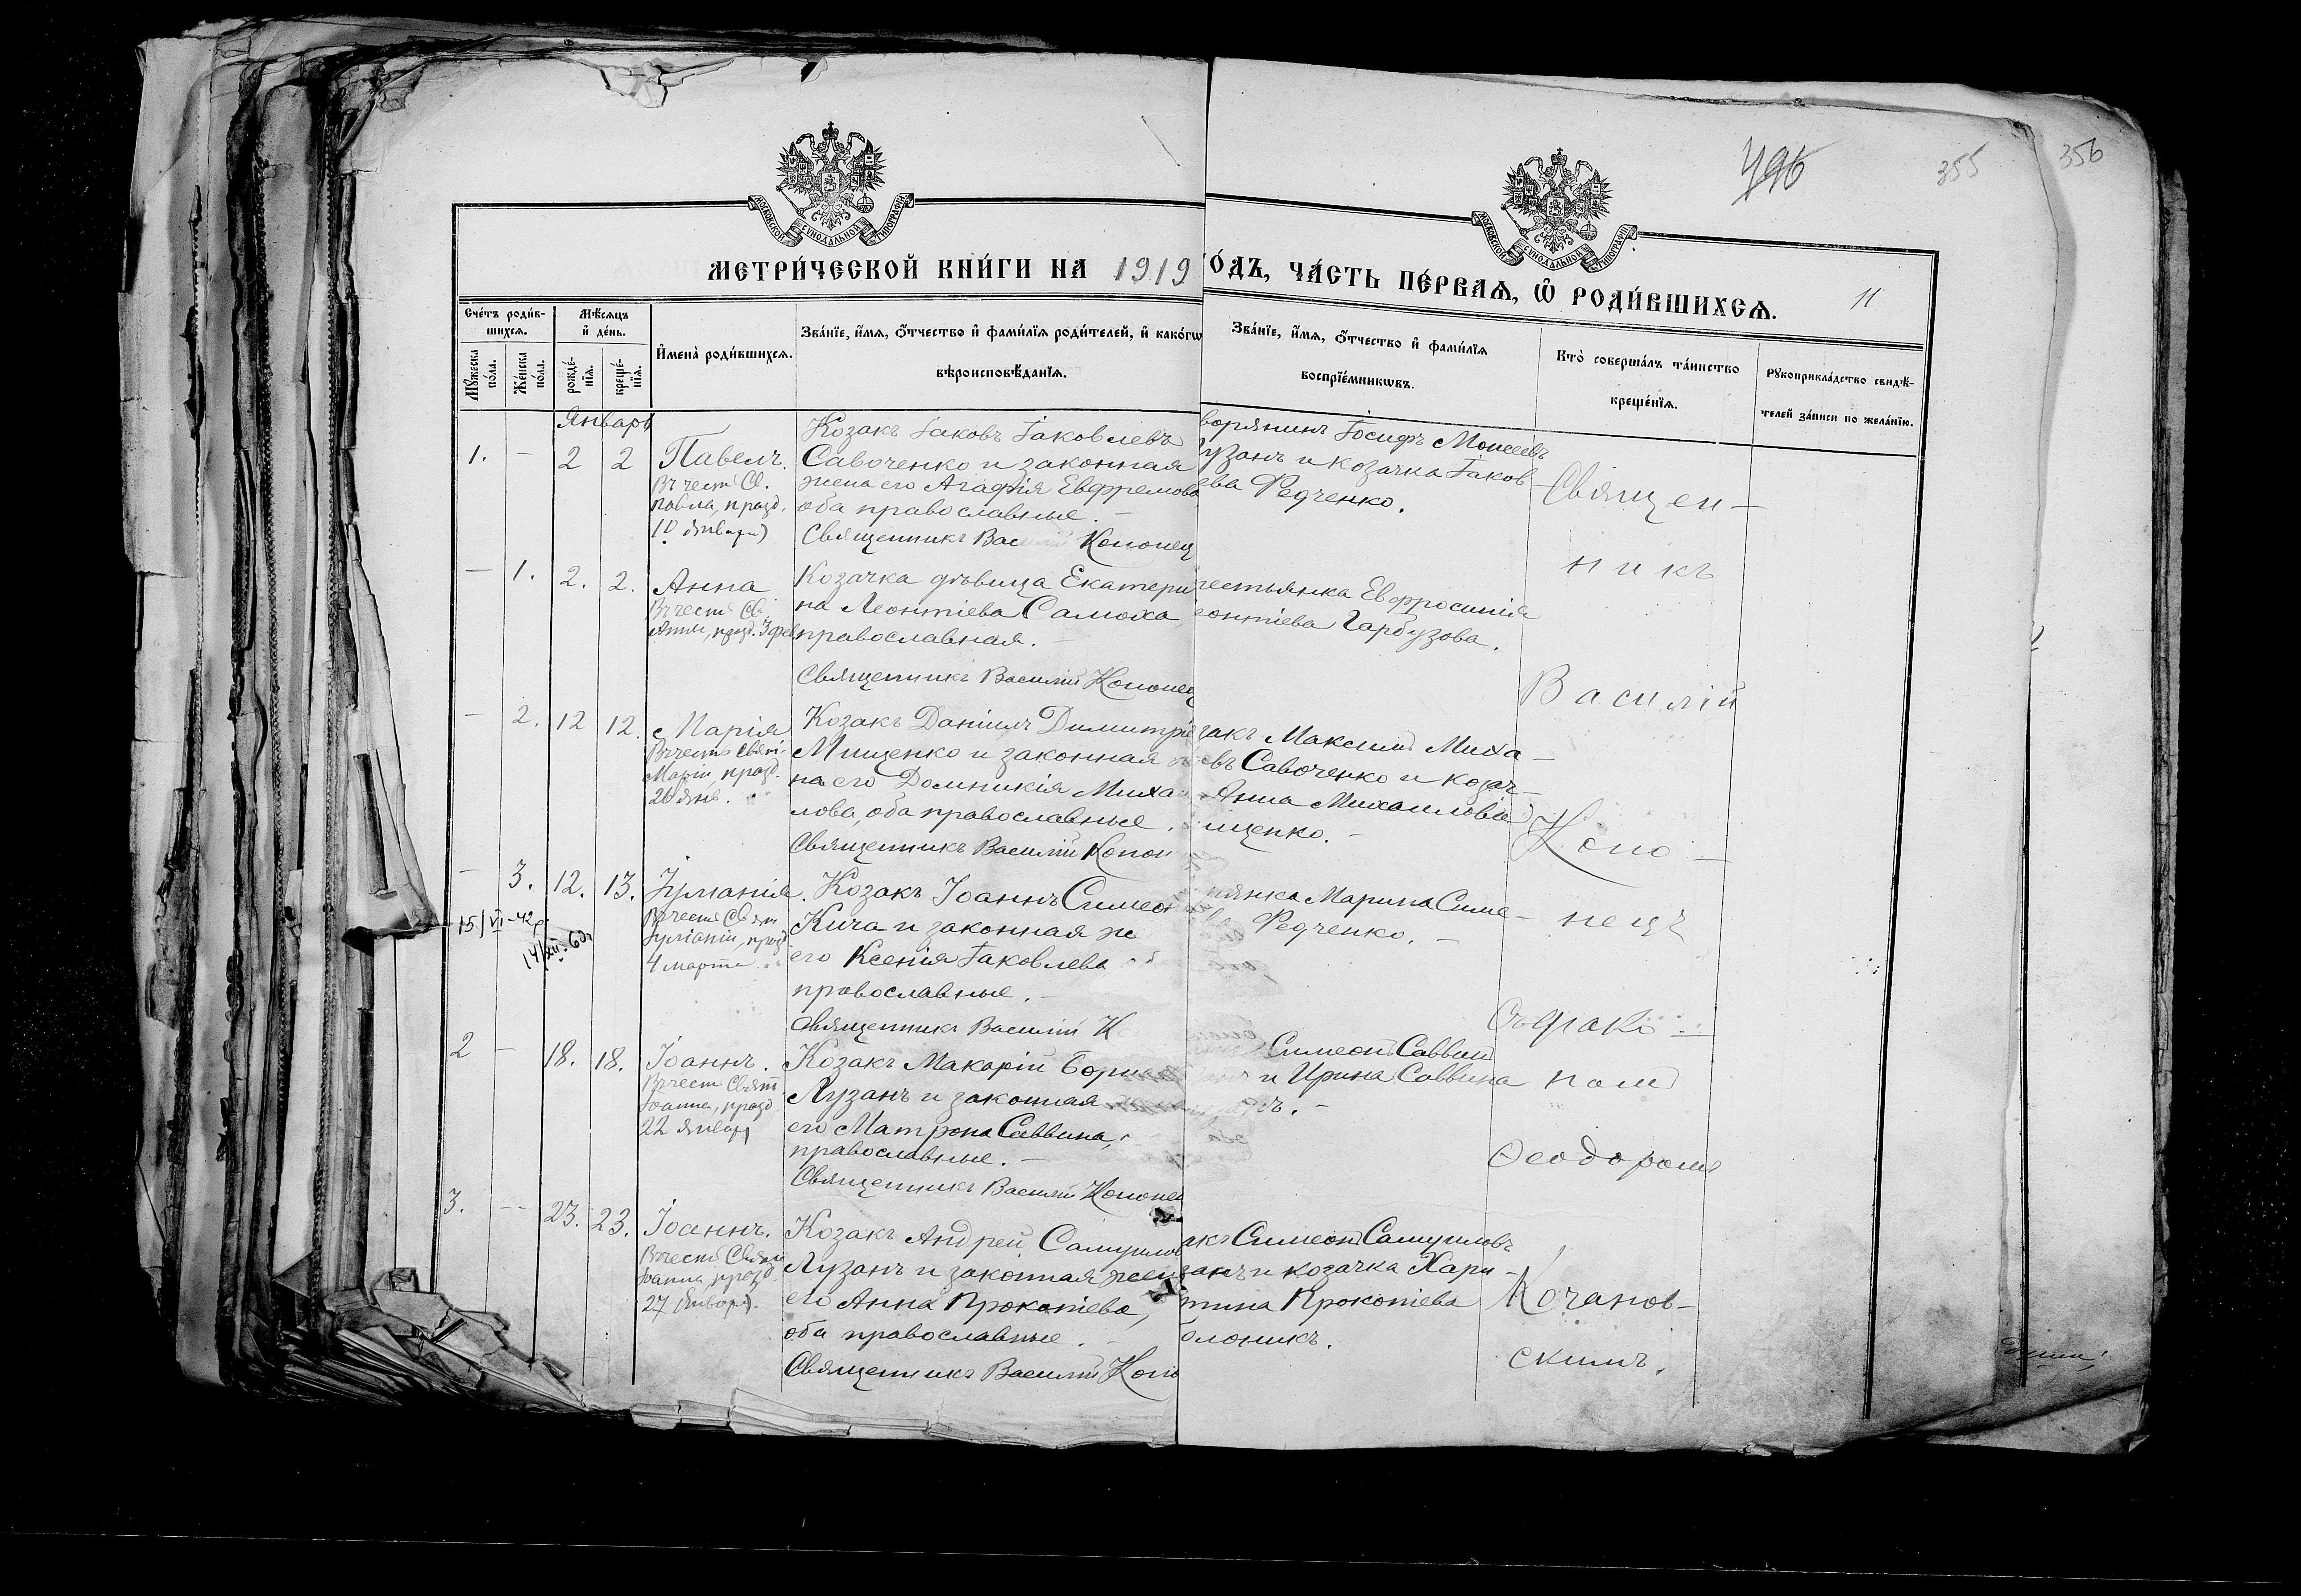 496
355
356
11
МОСКОВСКОЙ СѴНОДАЛЬНОЙ ТИПОГРАФІИ
МОСКОВСКОЙ СѴНОДАЛЬНОЙ ТИПОГРАФІИ
МЕТРИ́ЧЕСКОЙ КНИ́ГИ НА 1919
ГО́ДЪ, ЧА́СТЬ ПЕ́РВАѦ, Ѽ РОДИ́ВШИХСѦ.
Сче́тъ роди́в-
шихсѧ.
Мꙋ́жеска
по́ла.
Же́нска
по́ла.
Мѣ́сѧцъ
и҆ де́нь.
рожде́-
нїѧ.
креще́-
нїѧ.
И҆мена̀ роди́вшихсѧ.
Зва́нїе, и҆́мѧ, ѻ҆́тчество и҆ фами́лїѧ роди́телей, и҆ како́гѡ
вѣроисповѣ́данїѧ.
Зва́нїе, и҆́мѧ, ѻ҆́тчество и҆ фами́лїѧ
воспрїе́мникѡвъ.
Кто̀ соверша́лъ та́инство
креще́нїѧ.
Рꙋкоприкла́дство свидѣ́-
телей за́писи по жела́нїю.
Январь
1. — 2 2 Павелъ.
Въ честь Св.
Павла, празд.
10 января)
Козакъ Іаковъ Іаковлевъ
Савоченко и законная
жена его Агафія Евфремова
оба православные. —
Священникъ Вас Кононец
ворянинъ Іосифъ Моисеевъ
узанъ и козачка Іаков
ева Федченко.
— 1. 2. 2. Анна
Въ честь Св.
Анны, празд. 3 фев
Козачка дѣвица Екатери
на Леонтіева Самоха
православная. —
Священникъ Василій Кононец
рестьянка Евфросинія
еонтіева Гарбузова.
— 2. 12 12. Марія
Въ честь Свят.
Маріи, празд.
26 янв.
Козакъ Даніилъ Димитріе
Мищенко и законная
на его Домникія Миха
лова, оба православные.
Священникъ Василій Конон
закъ Максимъ Миха —
евъ Савоченко и козач —
Анна Михаилова
ищенко. —
— 3. 12. 13. Ірманія.
15/VI-42р.
14/XII-60г
Въ честь Свят
Ірманіи, празд
4 марта
Козакъ Іоаннъ Симеон
Кича и законная же
его Ксенія Іаковлева
православные. —
Священникъ Василій К
янка Марина Симе —
Федченко. —
2 — 18. 18. Іоаннъ.
Въ честь Свят
Іоанна, празд
22 январ
Козакъ Макарій Борис
Лузанъ и законная
его Матрона Саввина,
православные. —
Священникъ Василій Кононец
Симеонъ Саввин
и Ирина Саввина
3. — 23. 23. Іоаннъ.
Въ честь Свят
Іоанна, празд.
27 января.
Козакъ Андрей Самуилов
Лузанъ и законная жен
его Анна Прокопіева,
оба православные. —
Священникъ Василій Коно
акъ Симеонъ Самуиловъ
занъ и козачка Хари —
тина Прокопіева
олоникъ.
Священ —
никъ
Василій
Коно —
нецъ
съ діако —
номъ
Ѳеодоромъ
Кочанов —
скимъ.